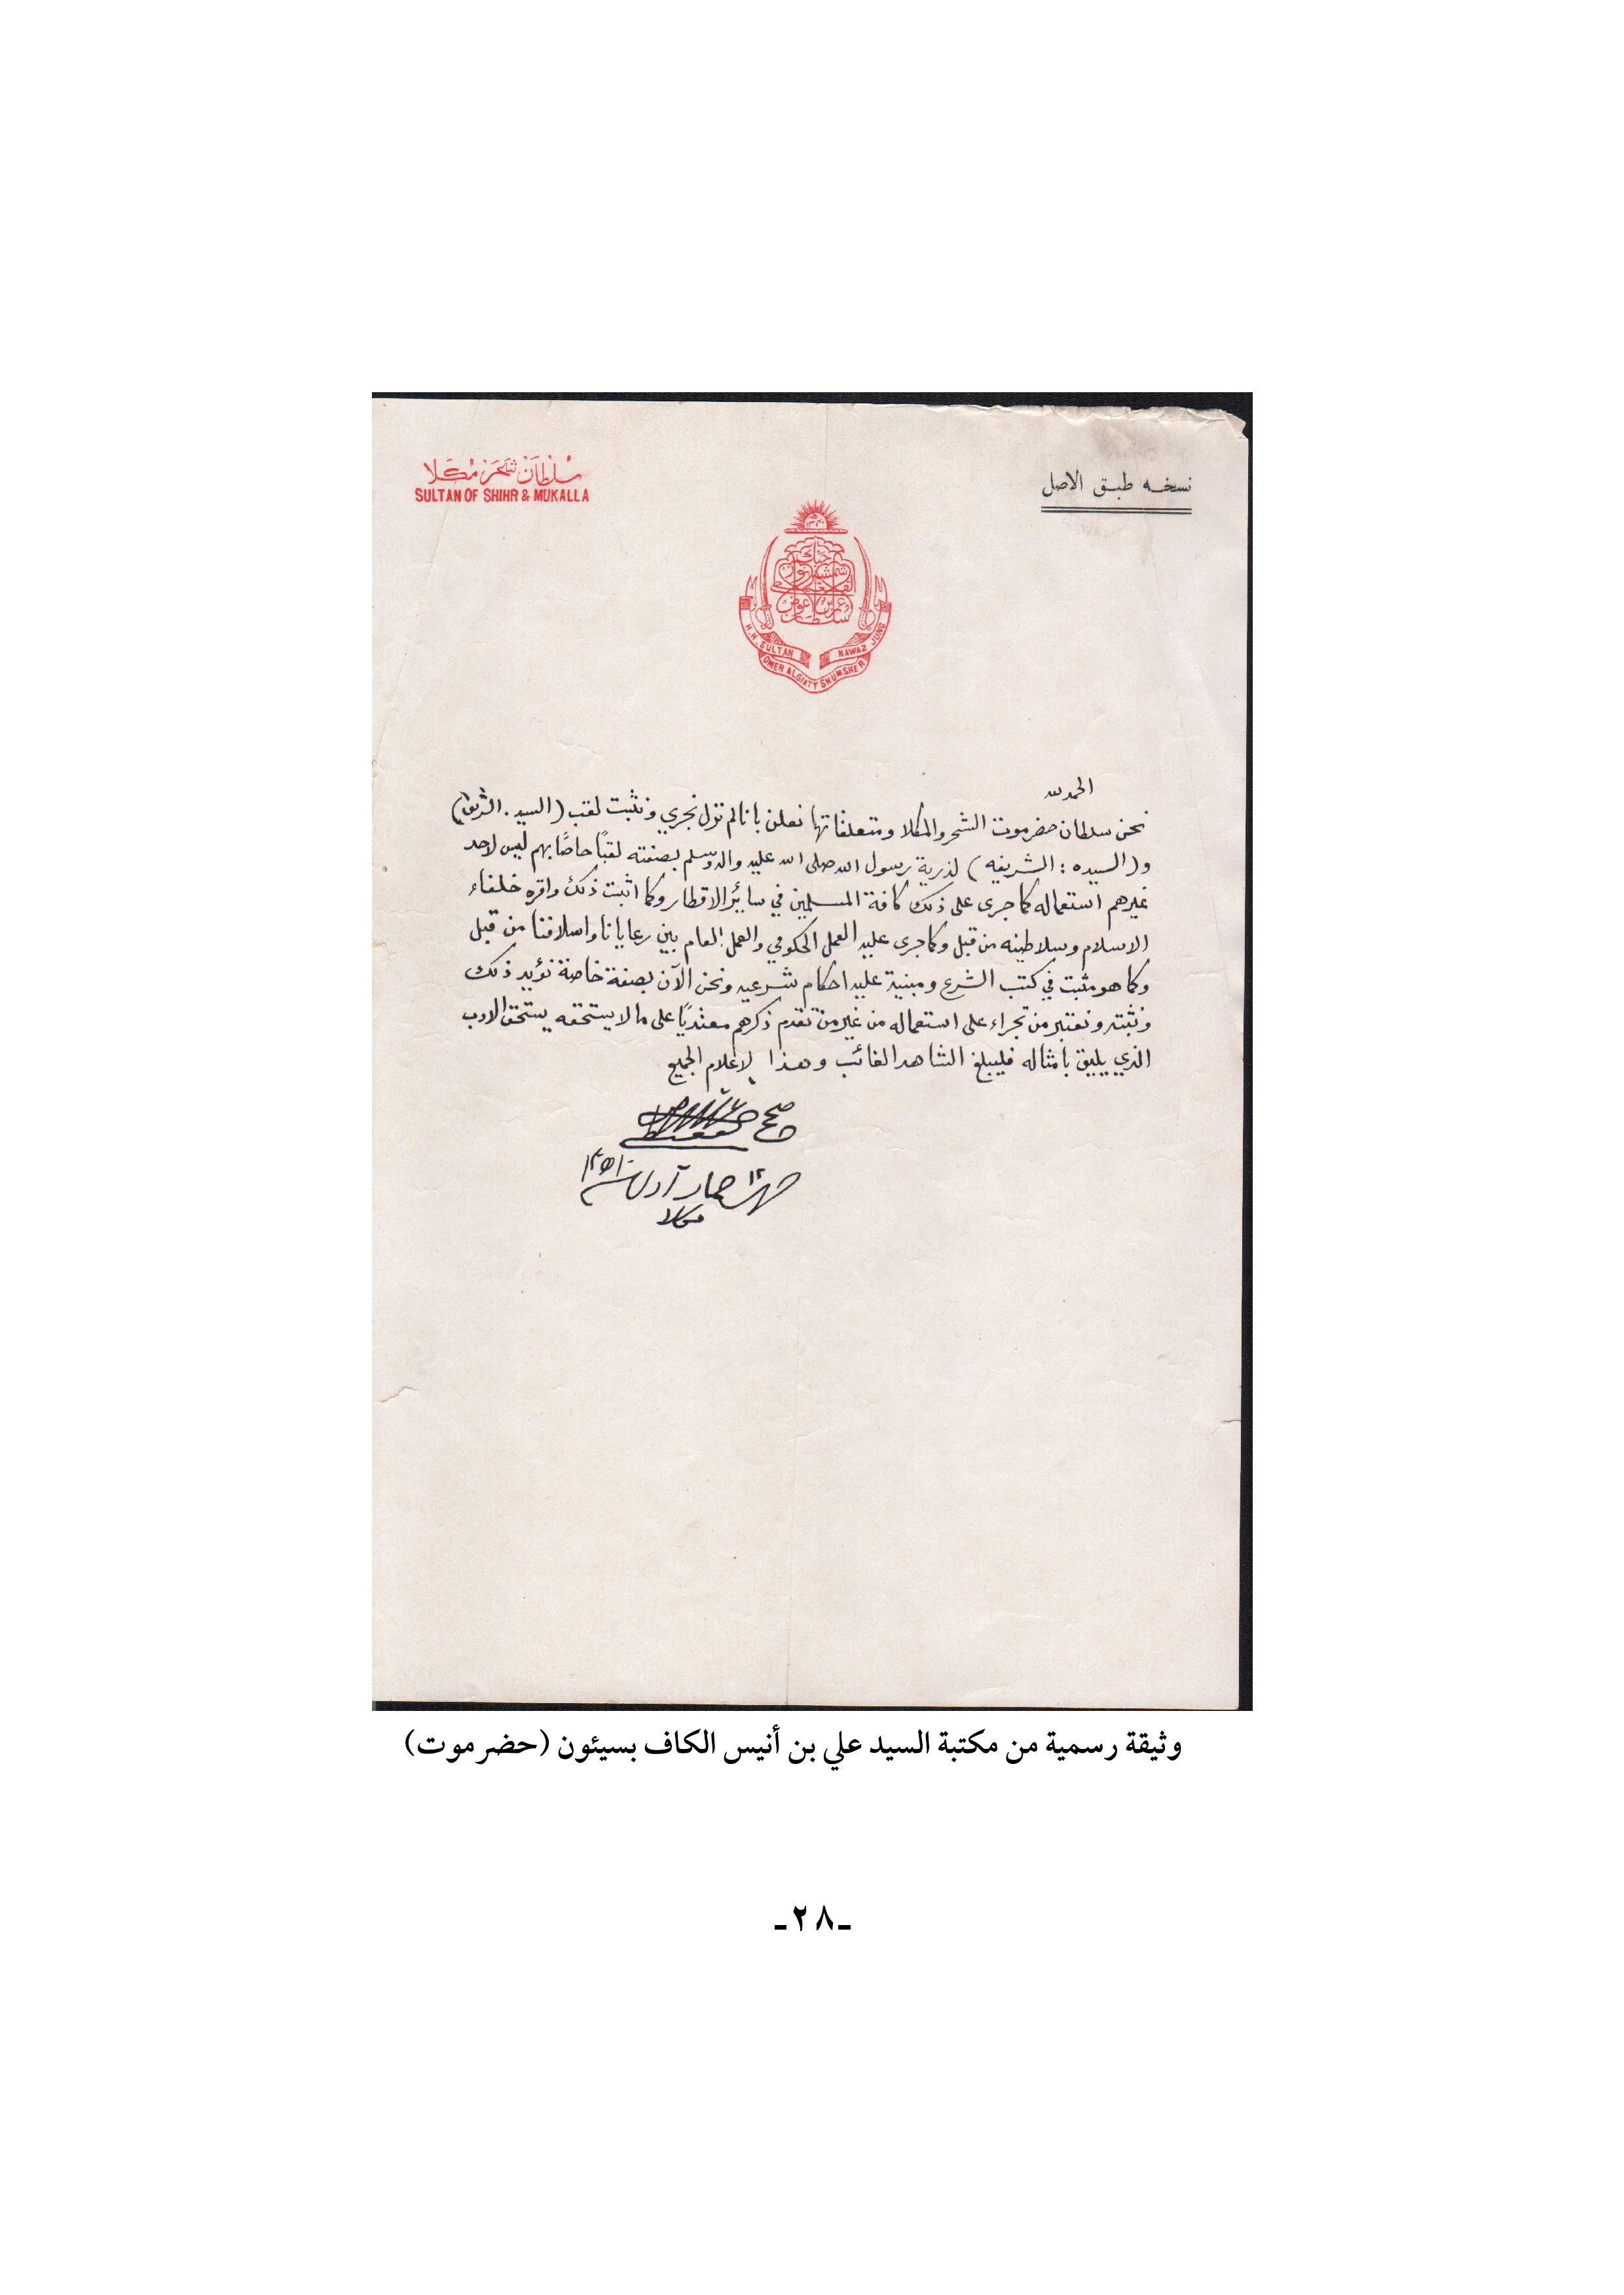 سلطان شحر مكلا
SULTAN OF SHIHR & MUKALLA
نسخه طبق الاصل
١٣٢٠
جنك
شمشير نواز
القعيطي
عمر بن عوض
سلطان
H.H. SULTAN NAWAZ JUNG
OMER ALGIATY SHUMSHER
الحمد لله
نحن سلطان حضرموت الشحر والمكلا ومتعلقاتها نعلن باننا لم نزل نجري ونثبت لقب (السيد . الشريف)
و(السيده : الشريفه) لذرية رسول الله صلى الله عليه واله وسلم بصفته لقبًا خاصًا بهم ليس لاحد
غيرهم استعماله كما جرى على ذلك كافة المسلمين في سائر الاقطار وكما اثبت ذلك واقره خلفاء
الاسلام وسلاطينه من قبل وكما جرى عليه العمل الحكومي والعمل العام بين رعايانا واسلافنا من قبل
وكما هو مثبت في كتب الشرع ومبنية عليه احكام شرعيه ونحن الآن بصفة خاصة نؤيد ذلك
ونثبته ونعتبر من تجراء على استعماله من غير من تقدم ذكرهم معتديًا على ما لا يستحقه يستحق الادب
الذي يليق بامثاله فليبلغ الشاهد الغائب وهذا لاعلام الجميع
صح
مكلا
وثيقة رسمية من مكتبة السيد علي بن أنيس الكاف بسيئون (حضرموت)
ـ٢٨ـ